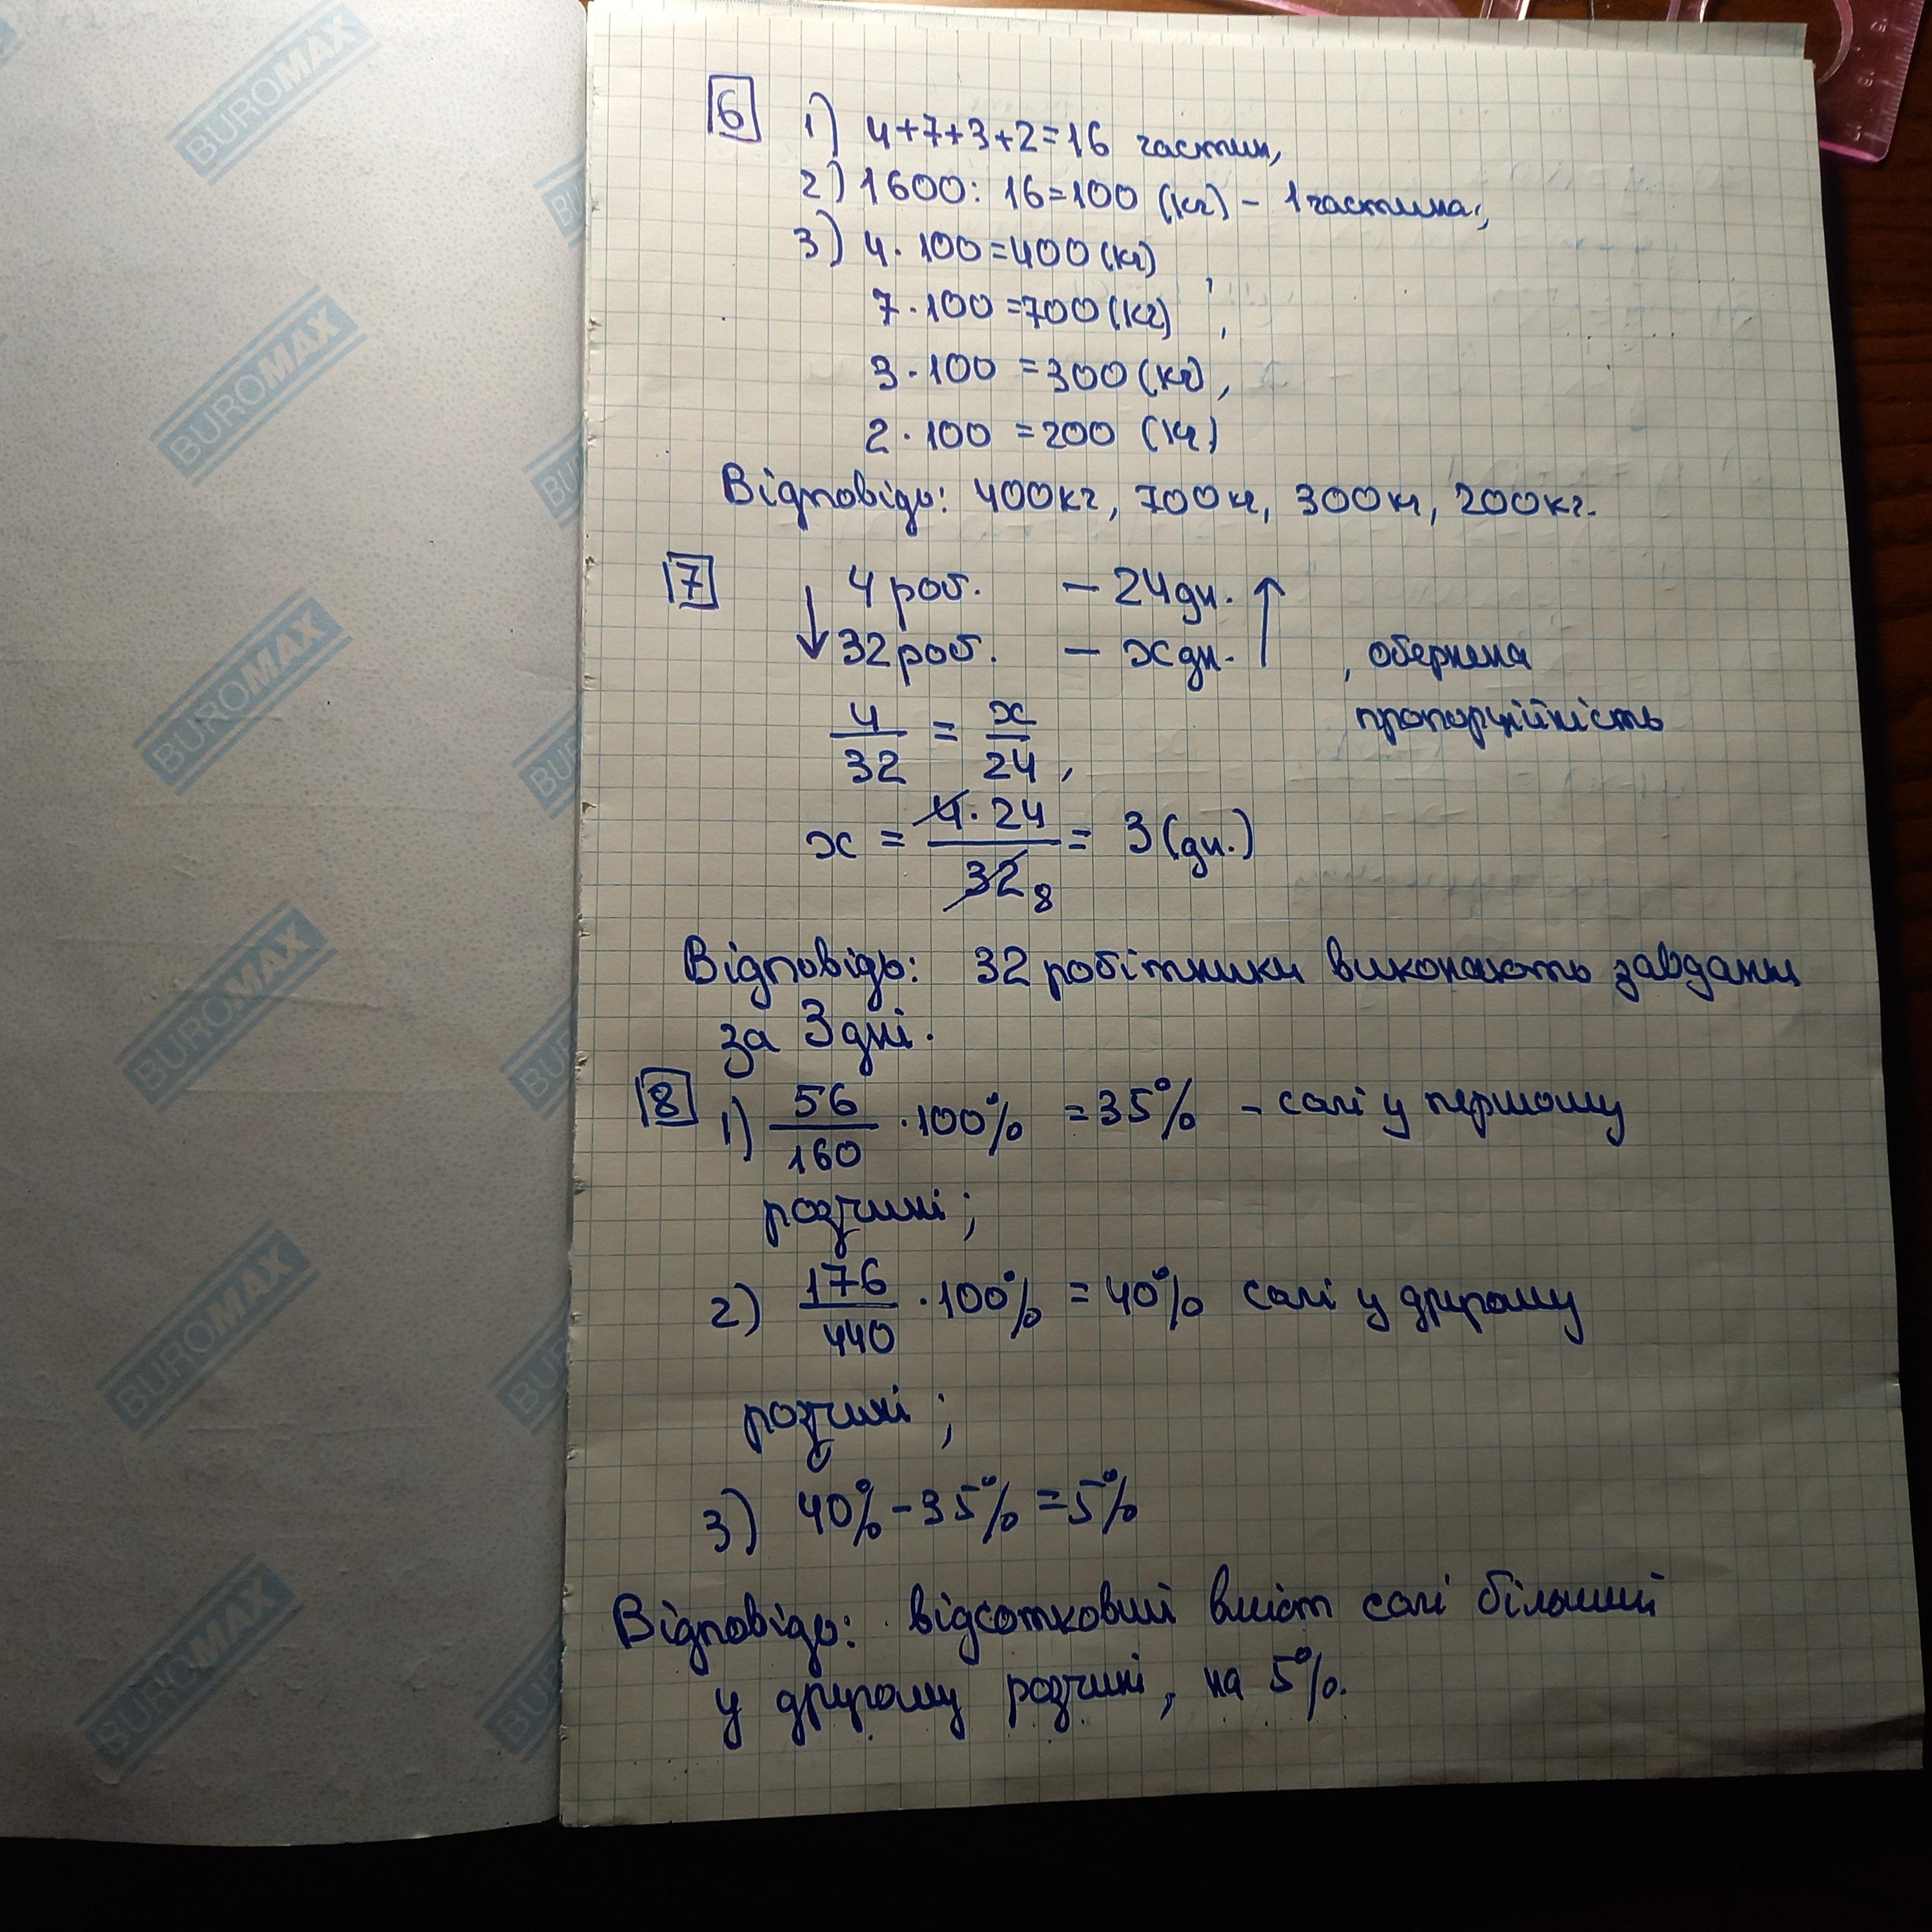 6 1) 4+7+3+2=16 частин,
2) 1600 : 16=100 (кг) - 1 частина;,
3) 4 · 100=400 (кг)
7 · 100=700 (кг) ,
3 · 100 =300 (кг),
2 · 100 =200 (кг)
Відповідь: 400кг, 700кг, 300кг, 200кг.
7 ↓ 4 роб. - 24дн. ↑
32 роб. - x дн. , обернена
пропорційність
4/32 = x/24 ,
x = 4·24/32 8 = 3 (дн.)
Відповідь: 32 робітники виконають завдання
за 3 дні.
8 1) 56/160 · 100% = 35% - солі у першому
розчині;
2) 176/440 · 100% = 40% солі у другому
розчині;
3) 40% - 35% = 5%
Відповідь: відсотковий вміст солі більший
у другому розчині, на 5%.
BUROMAX
BUROMAX
BUROMAX
BUROMAX
BUROMAX
BUROMAX